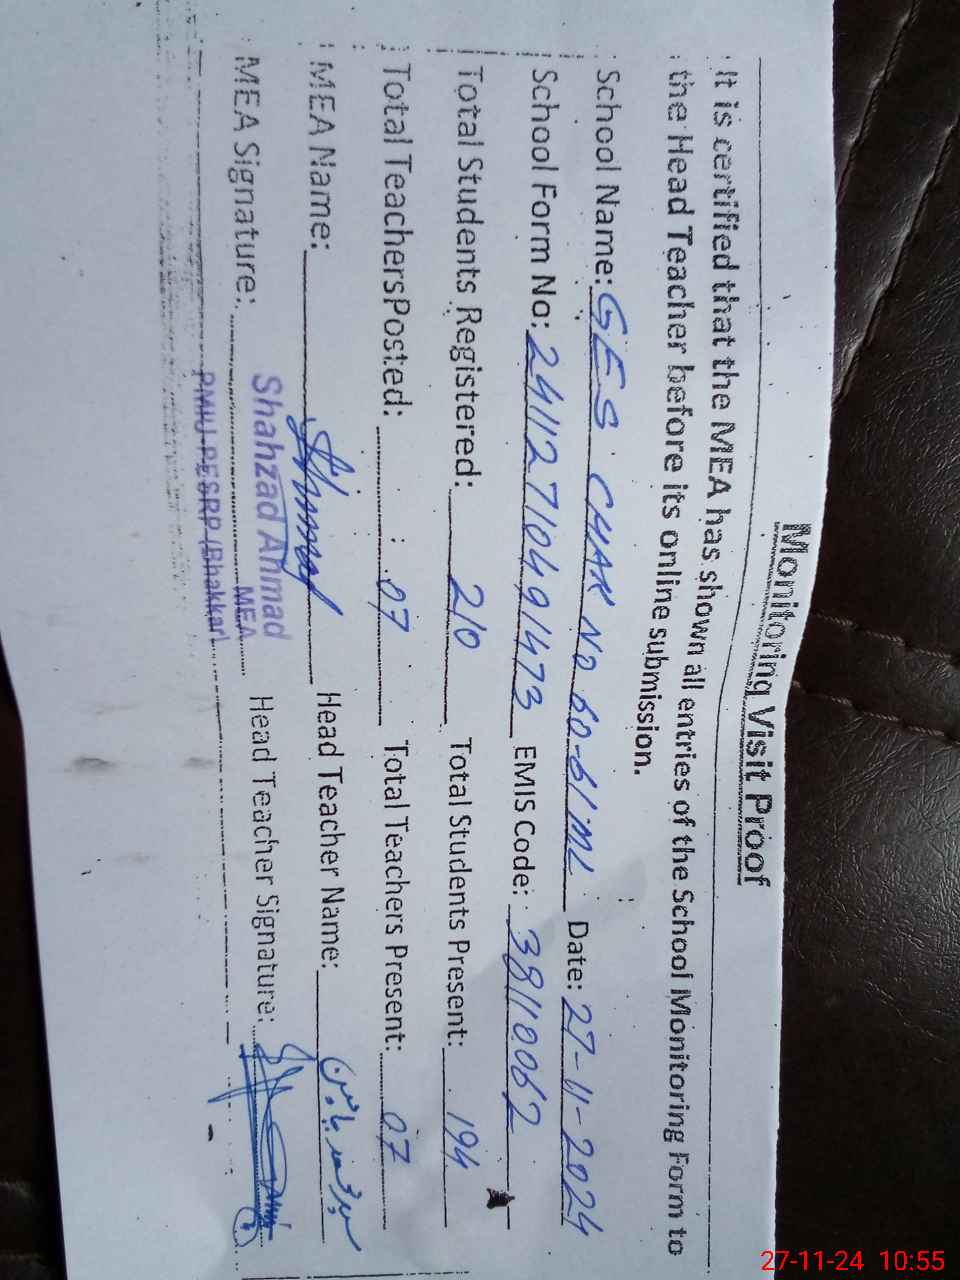 Monitoring Visit Proof
It is certified that the MEA has shown all entries of the School Monitoring Form to
the Head Teacher before its online submission.
School Name: GES CHAK NO 60-61 ML Date: 27-11-2024
School Form No: 24112710491473 EMIS Code: 38110062
Total Students Registered: 210 Total Students Present: 194
Total TeachersPosted: 07 Total Teachers Present: 07
MEA Name: Head Teacher Name: سید محمد یاسین
MEA Signature: Shahzad Ahmad Head Teacher Signature:
MEA
PMIU-PESRP (Bhakkar)
27-11-24 10:55